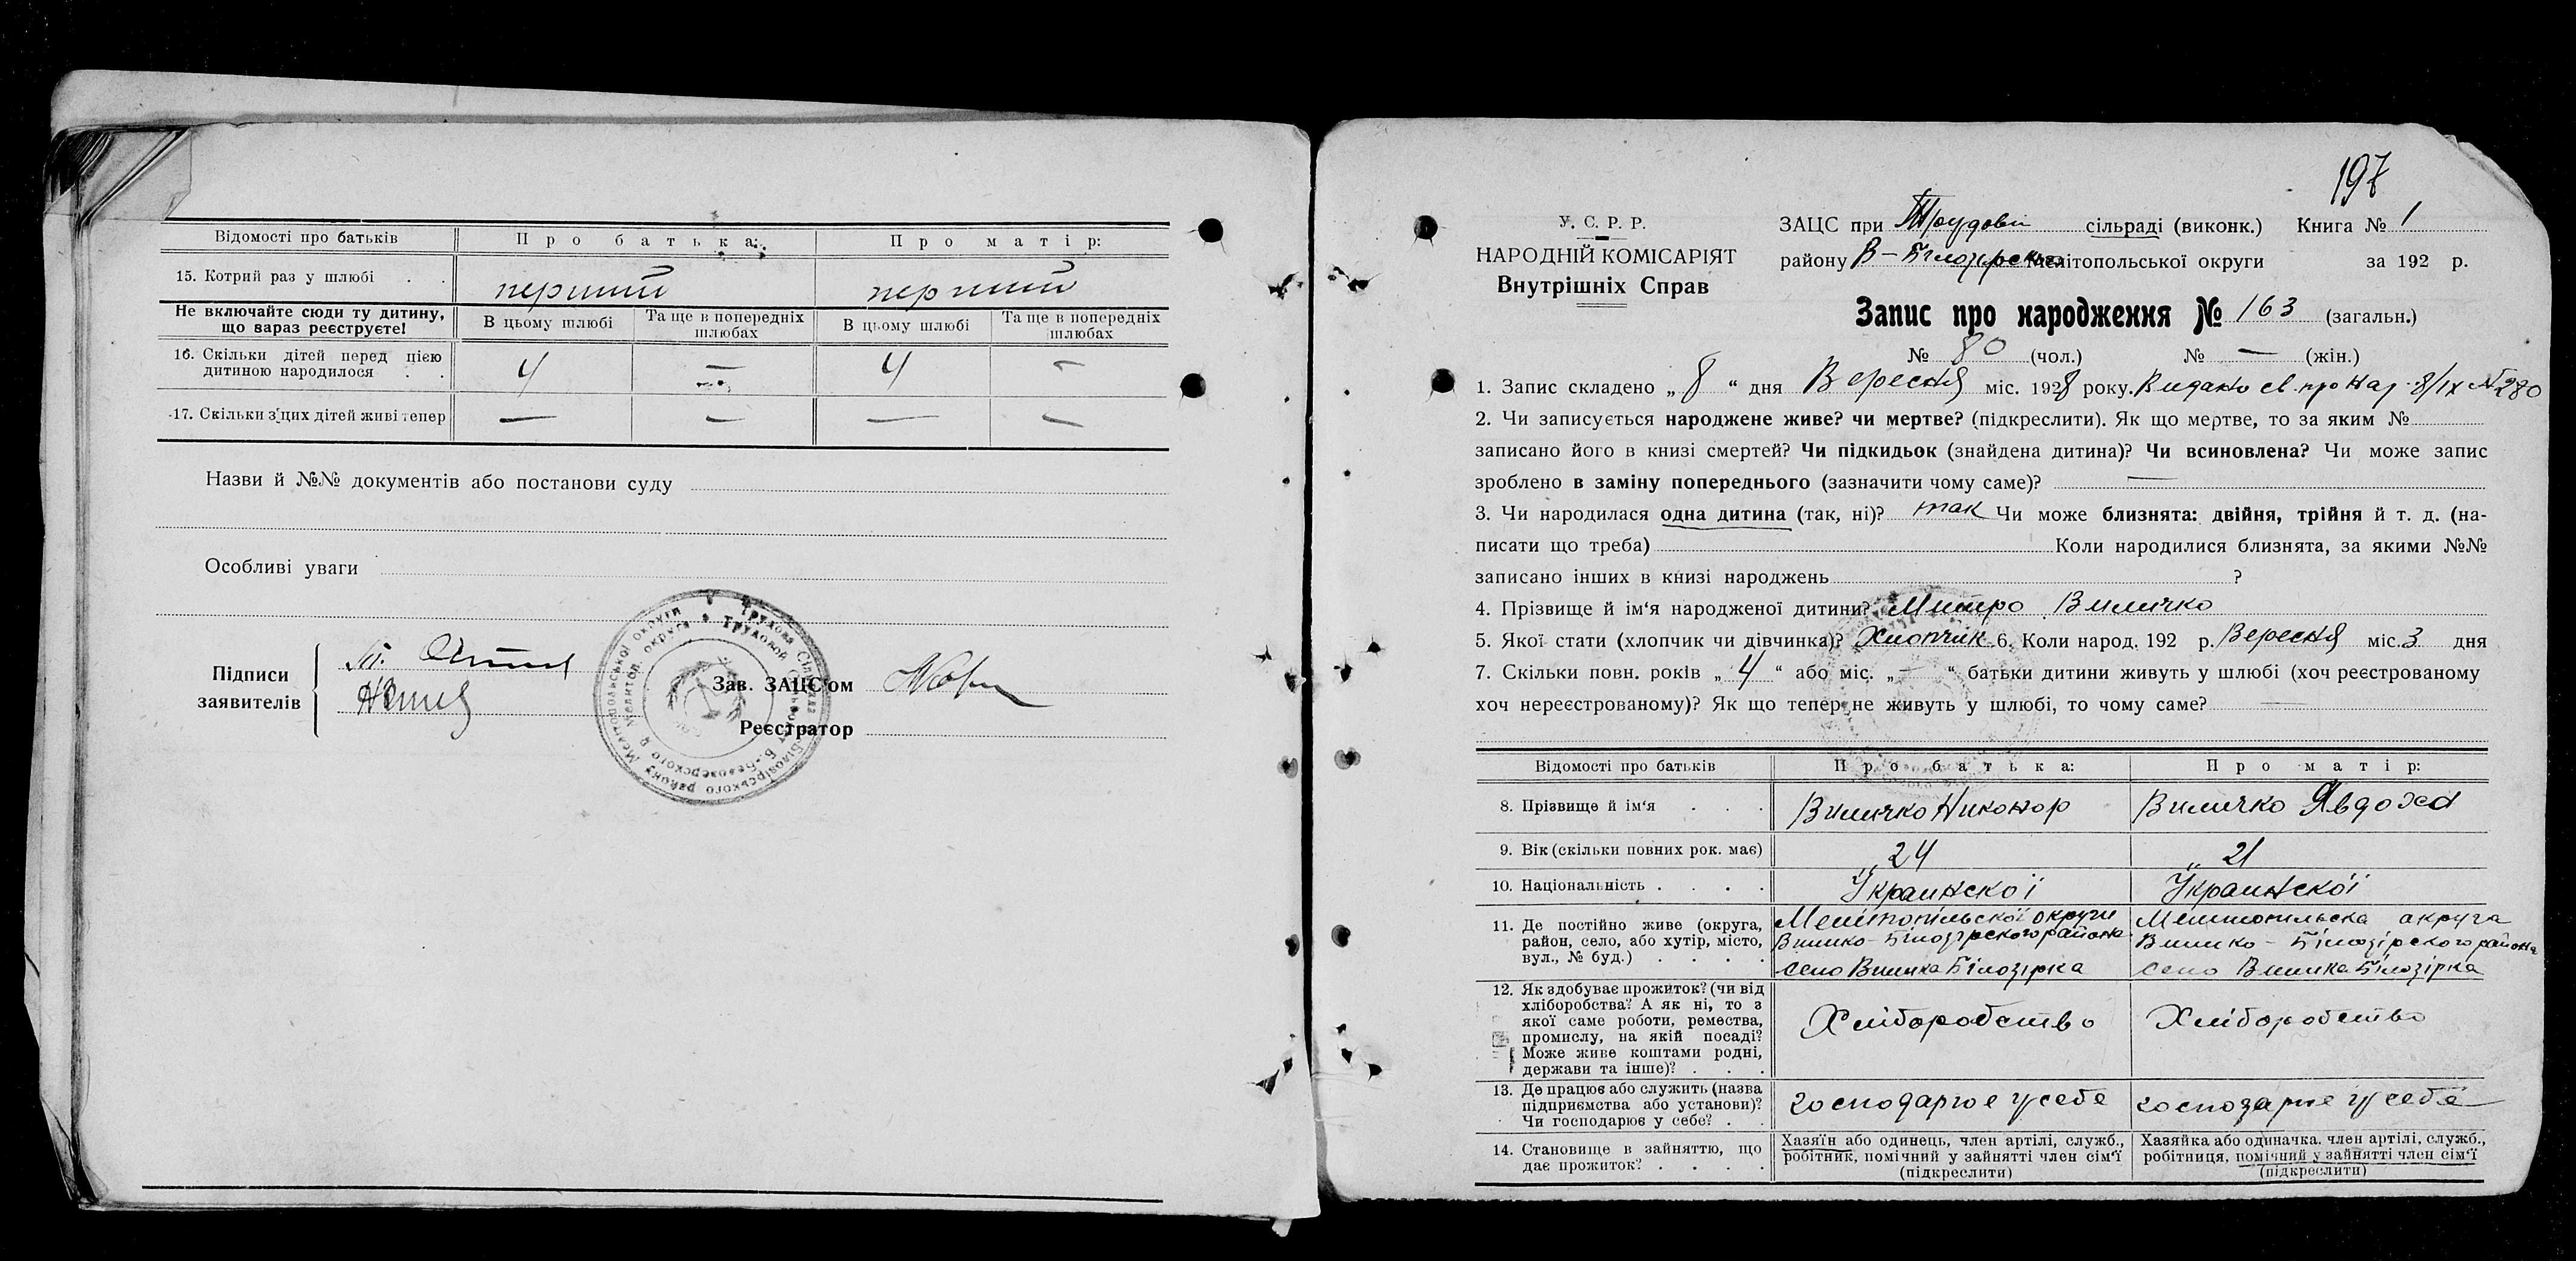 Відомості про батьків Про батька: Про матір:
15. Котрий раз у шлюбі . . перший перший
Не включайте сюди ту дитину, що вараз реєструєте!
В цьому шлюбі Та ще в попередніх шлюбах В цьому шлюбі Та ще в попередніх шлюбах
16. Скільки дітей перед цією дитиною народилося . . 4 — 4 —
17. Скільки з цих дітей живі тепер — — — —
Назви й №№ документів або постанови суду
Особливі уваги
Підписи заявителів
Зав. ЗАЦС'ом
Реєстратор
197
У. С. Р. Р.
НАРОДНІЙ КОМІСАРІЯТ
Внутрішніх Справ
ЗАЦС при Трудовій сільраді (виконк.) Книга № 1
району В-Білозірсько Мелітопольської округи за 192 р.
Запис про народження № 163 (загальн.)
№ 80 (чол.) № — (жін.)
1. Запис складено „ 8 “ дня Вересня міс. 1928 року. Видано св. про нар. 8/IX № 280
2. Чи записується народжене живе? чи мертве? (підкреслити). Як що мертве, то за яким №
записано його в книзі смертей? Чи підкидьок (знайдена дитина)? Чи всиновлена? Чи може запис
зроблено в заміну попереднього (зазначити чому саме)? —
3. Чи народилася одна дитина (так, ні)? так Чи може близнята: двійня, трійня й т. д. (на-
писати що треба) Коли народилися близнята, за якими №№
записано інших в книзі народжень ?
4. Прізвище й ім‘я народженої дитини? Митро Виличко
5. Якої стати (хлопчик чи дівчинка)? Хлопчік 6. Коли народ. 192 р. Вересня міс. 3 дня
7. Скільки повн. років „ 4 “ або міс. „ — “ батьки дитини живуть у шлюбі (хоч реєстрованому
хоч нереєстрованому)? Як що тепер не живуть у шлюбі, то чому саме? —
Відомості про батьків Про батька: Про матір:
8. Прізвище й ім‘я . . . Виличко Никонор Виличко Явдоха
9. Вік (скільки повних рок. має) 24 21
10. Національність . . . . Украинскоі Украинскоі
11. Де постійно живе (округа, район, село, або хутір, місто, вул., № буд.) . . . .
Мелітопільскої округи Мелитопильска округа
Велико-Білозірского района Велико-Білозірского района
село Велика Білозірка село Велика Білозірка
12. Як здобуває прожиток? (чи від хліборобства? А як ні, то з якої саме роботи, ремества, промислу, на якій посаді? Може живе коштами родні, держави та інше)? . . .
Хліборобство Хліборобство
13. Де працює або служить (назва підприємства або установи)? Чи господарює у себе? . .
господарює у себе господарює у себе
14. Становище в зайняттю, що дає прожиток? . . . .
Хазяїн або одинець, член артілі, служб., робітник, помічний у зайнятті член сім‘ї (підкреслити)
Хазяйка або одиначка, член артілі, служб., робітниця, помічний у зайнятті член сім‘ї (підкреслити)